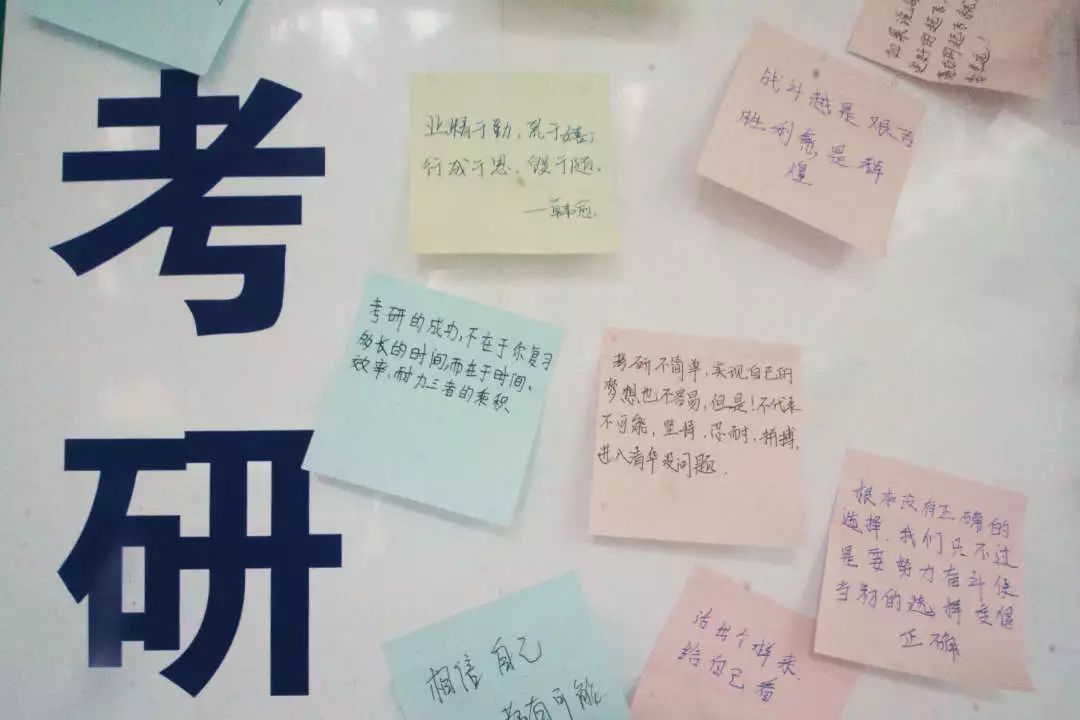 考
研
如果说
更好的起飞,
业精于勤,荒于嬉;
行成于思,毁于随。
—韩愈
战斗越是艰苦
胜利愈是辉
煌
考研的成功,不在于你复习
够长的时间,而在于时间、
效率、耐力三者的乘积
考研不简单,实现自己的
梦想也不容易,但是!不代表
不可能,坚持,忍耐,拼搏,
进入清华没问题.
根本没有正确的
选择,我们只不过
是要努力奋斗使
当初的选择变得
正确
相信自己
有可能
活出个样来
给自己看